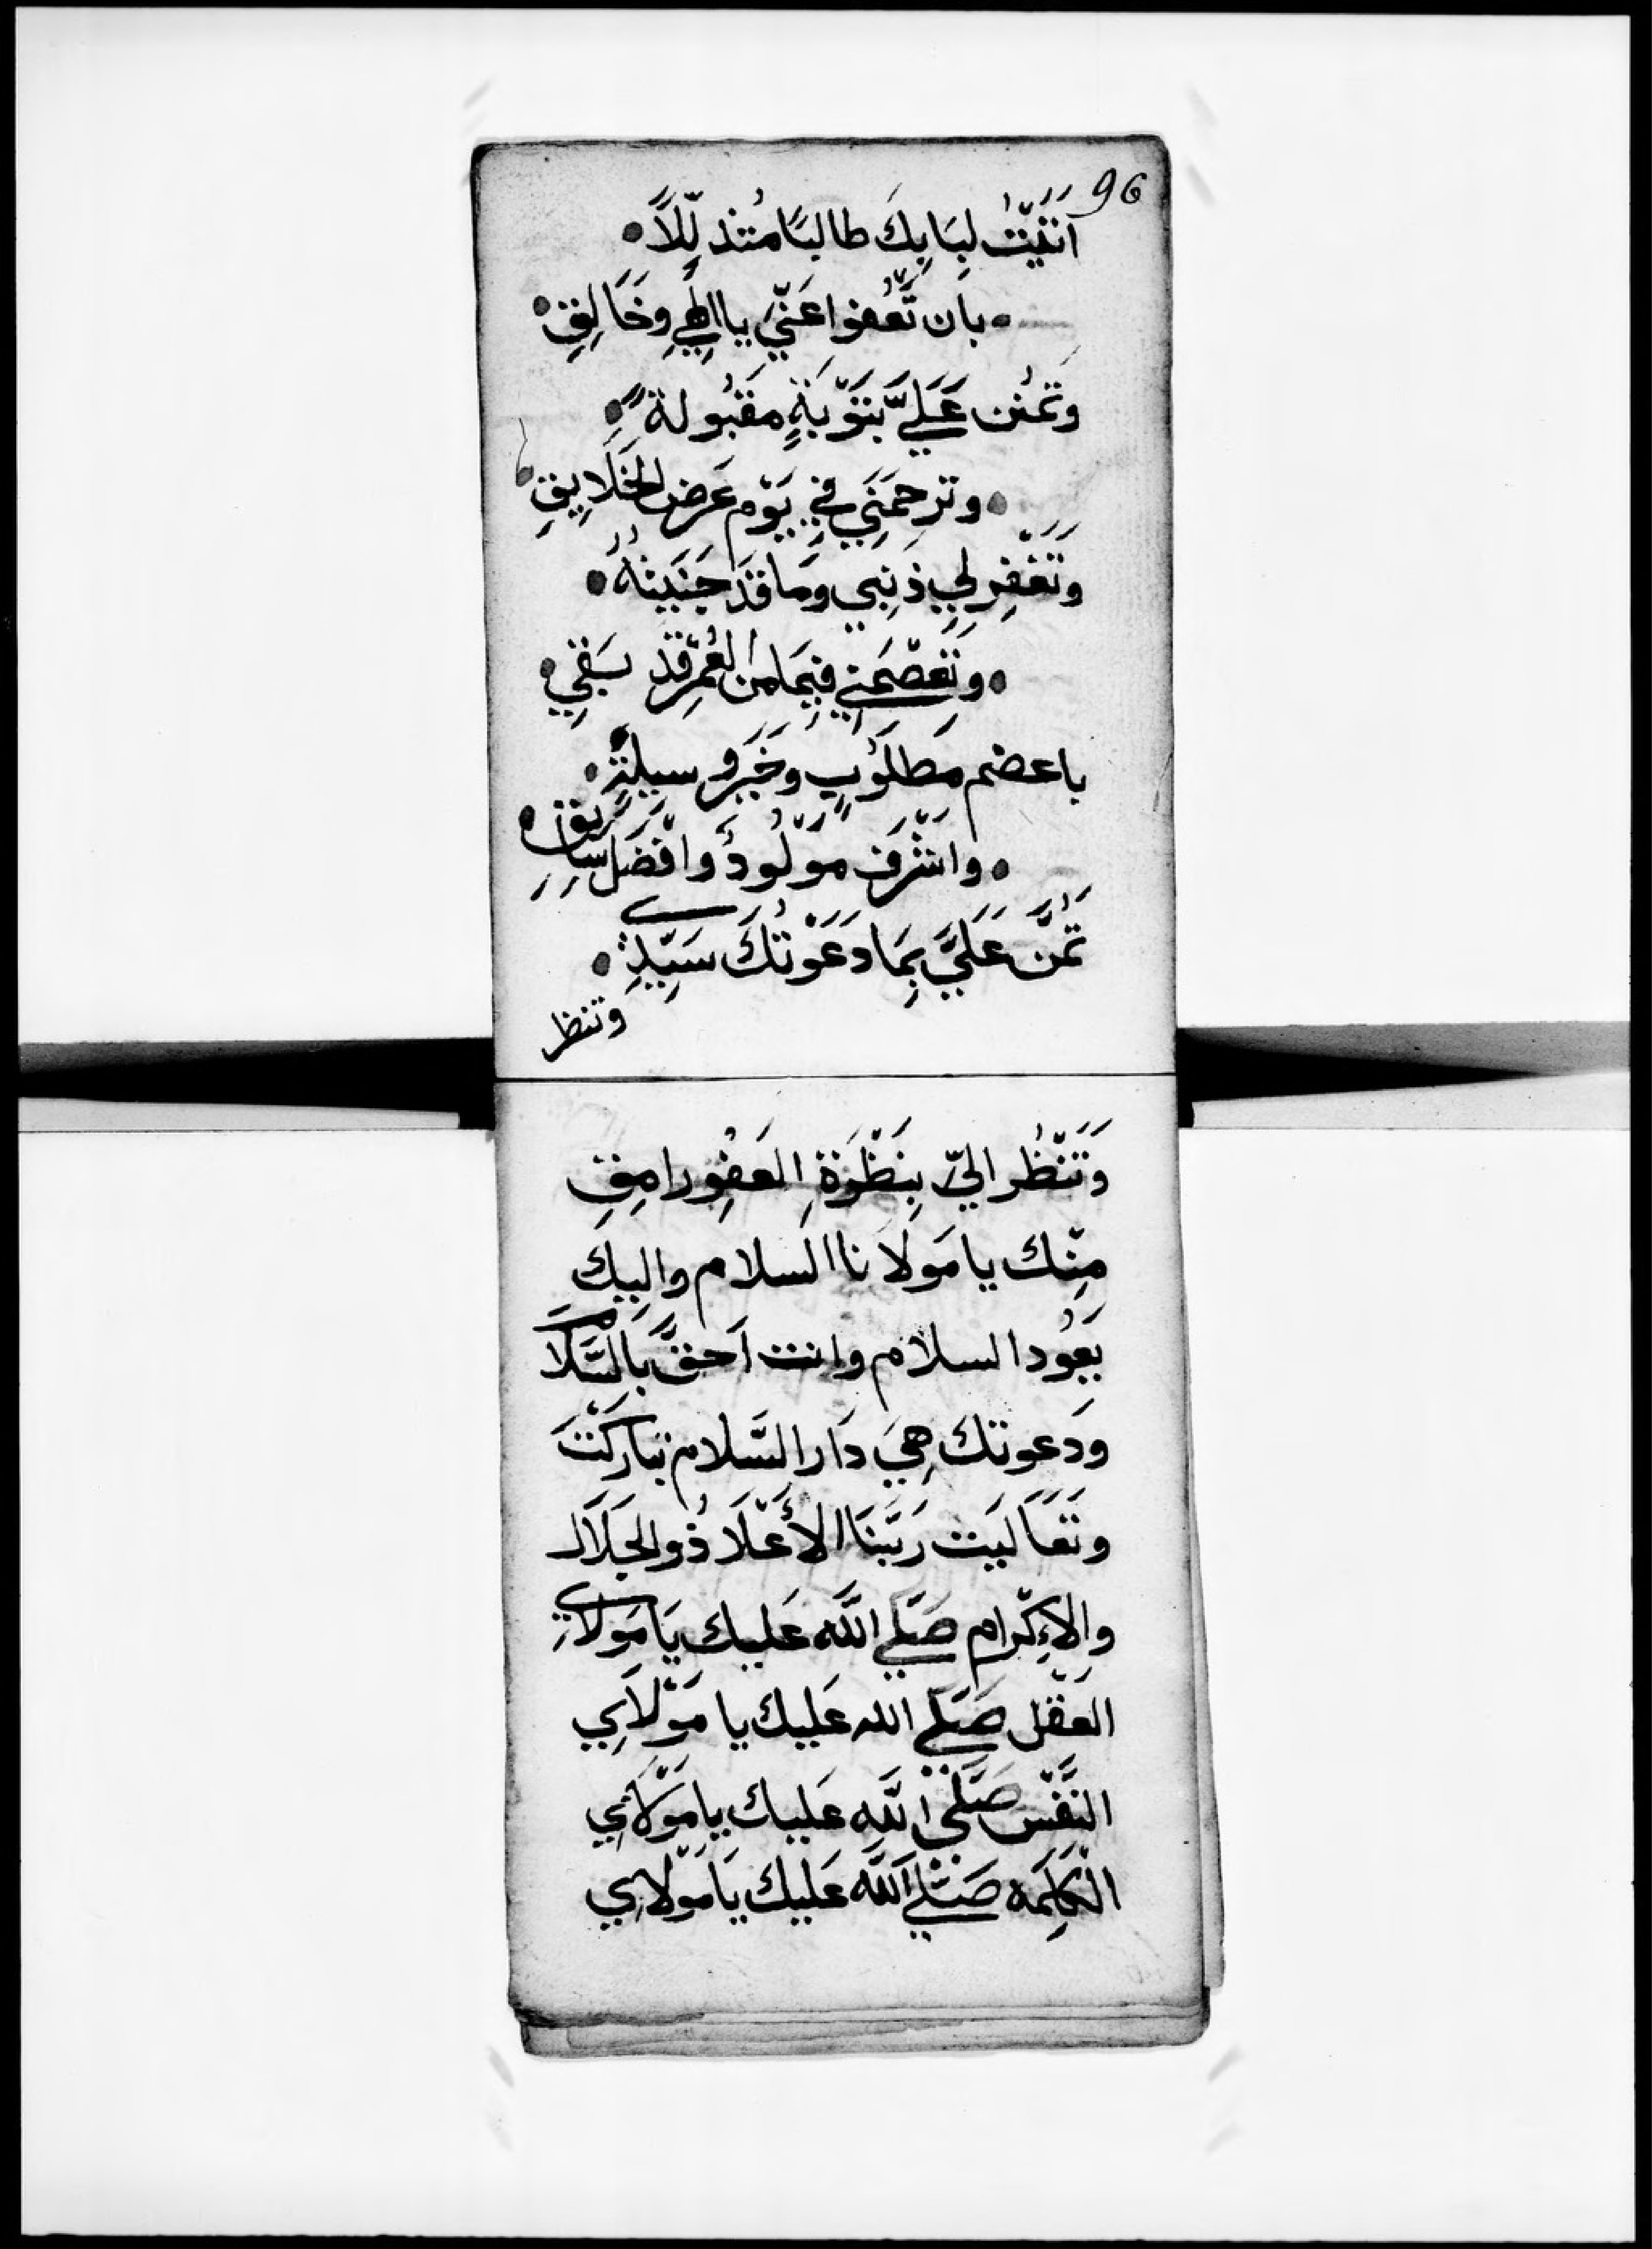 96
اَتَيْتُ لِبَابِكَ طالبًا مُتذلِّلًا
بان تَعْفُوا عَنّي يا الهي وخَالِقِي
وتمنُن عَليَّ بتَوْبَةٍ مقبُولة
وترحمَنِي في يَوْم عَرض الخَلَايِقِ
وتَغْفِر لِي ذنبِي ومَا قدَ جَنَيتهُ
وتَعصْمَنِي فيمَا من العُمْرِ قد بَقي
باعضم مَطلوُبٍ وخَير وسيلةٍ
واشْرَف مَوْلُودٍ وافْضَل سَابقٍ
تَمُنَّ عَلَيَّ بِمَا دَعَوْتُكَ سَيّدِي
وتنظر
وَتَنْظُر اليّ بِنَظْرَةِ العَفِو رامِقِ
مِنْك يا مَولانا السلام واليكَ
يَعُود السلام وانت اَحقَّ بالسَّلَام
ودَعوتكَ هِيَ دَار السَّلام تباركْتَ
وتَعَاليَت رَبَّنَا الأَعْلَا ذُو الجَلَال
والإكْرام صَلّي اللَّه عَليك يَا مَولاي
العَقْل صَلّي الله عَليك يا مَوْلَايِ
النَّفْس صَلّي اللَّه عَليك يا مَوْلاي
الكَلِمَه صَلّي اللَّه عَليك يَا مَوْلايِ